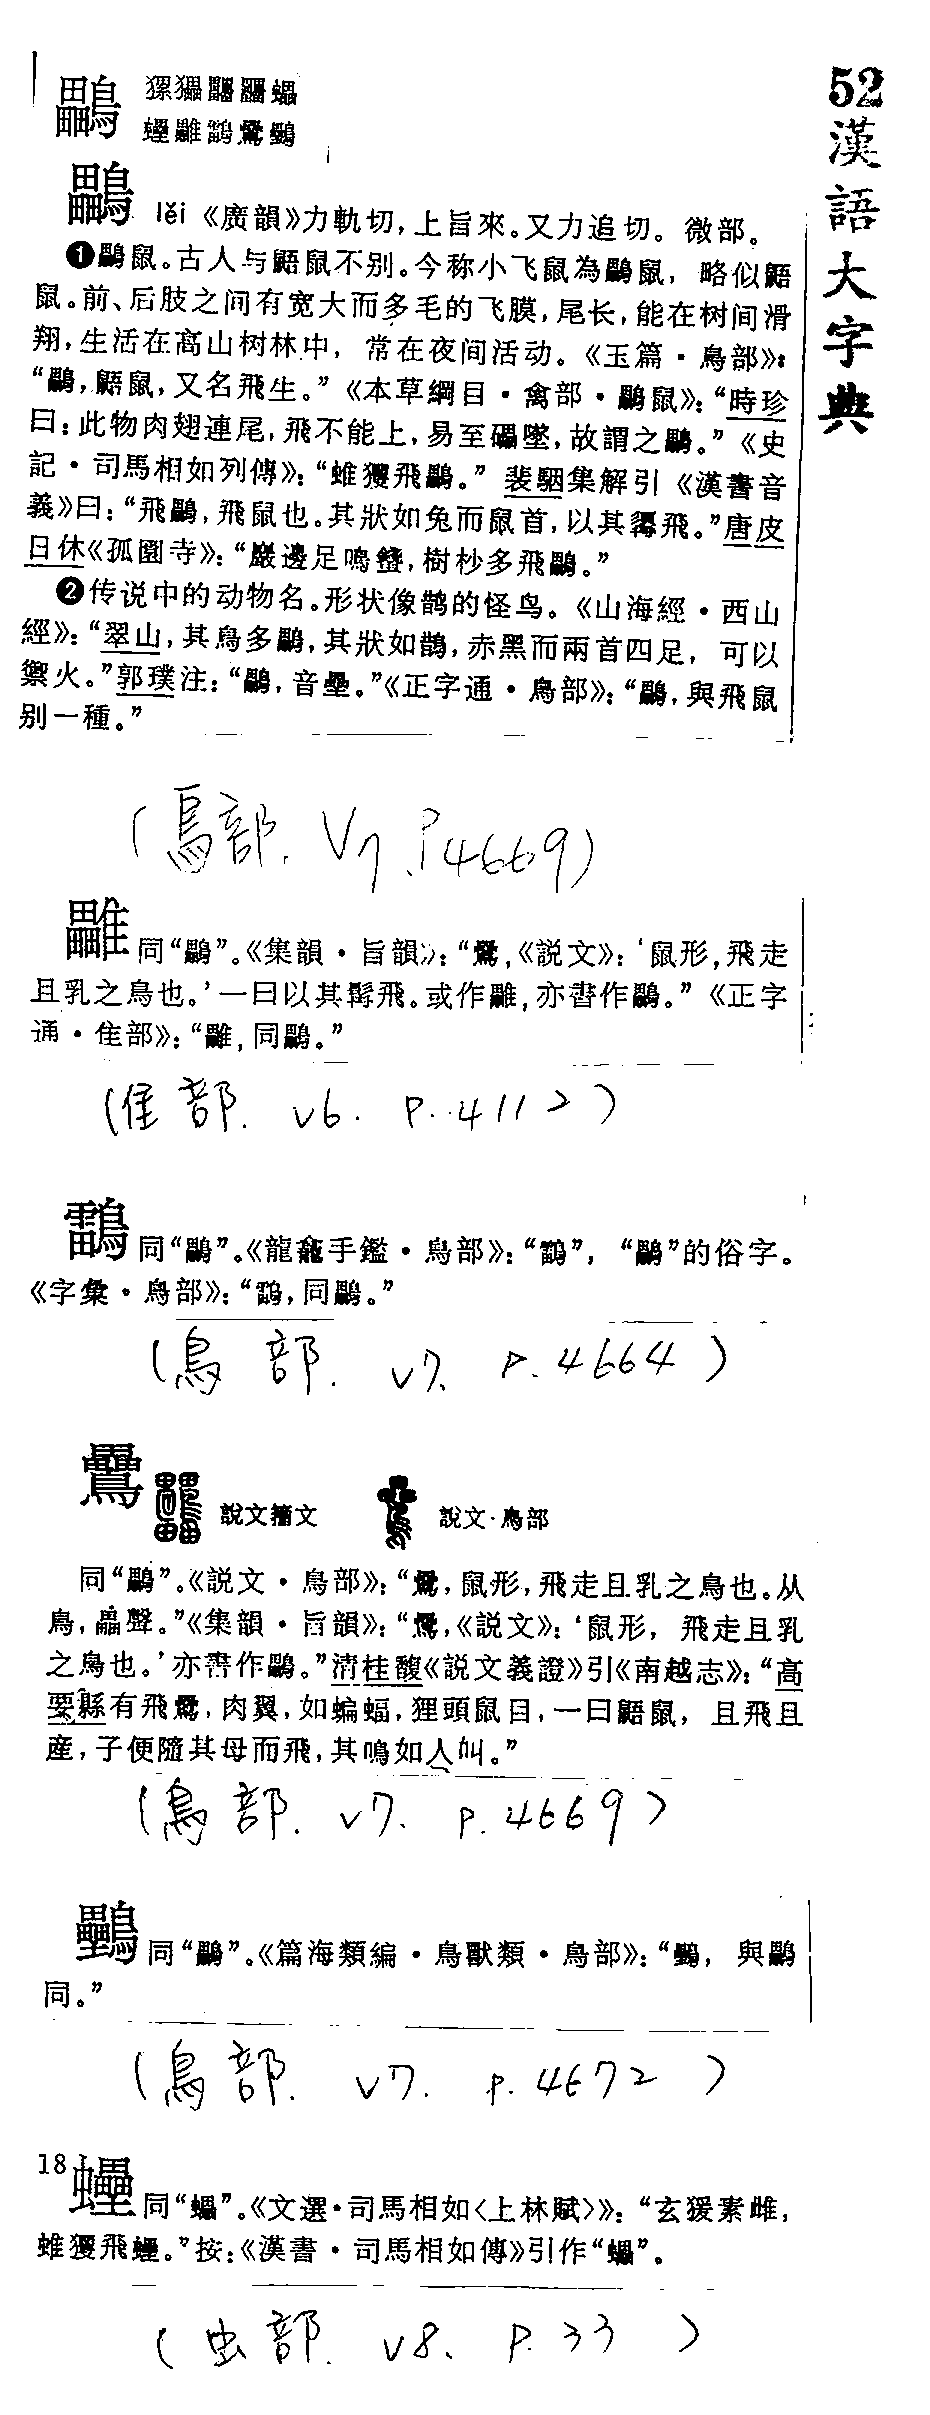 52
漢語大字典
鸓
鸓 lěi《廣韻》力軌切,上旨來。又力追切。微部。
❶鸓鼠。古人与鼯鼠不别。今称小飞鼠為鸓鼠,略似鼯
鼠。前、后肢之间有宽大而多毛的飞膜,尾长,能在树间滑
翔,生活在高山树林中,常在夜间活动。《玉篇·鳥部》:
“鸓,鼯鼠,又名飛生。”《本草綱目·禽部·鸓鼠》:“時珍
曰:此物肉翅連尾,飛不能上,易至礌墜,故謂之鸓。”《史
記·司馬相如列傳》:“蜼玃飛鸓。”裴駰集解引《漢書音
義》曰:“飛鸓,飛鼠也。其狀如兔而鼠首,以其髯飛。”唐皮
日休《孤園寺》:“巖邊足鳴蛩,樹杪多飛鸓。”
❷传说中的动物名。形状像鹊的怪鸟。《山海經·西山
經》:“翠山,其鳥多鸓,其狀如鵲,赤黑而兩首四足,可以
禦火。”郭璞注:“鸓,音壘。”《正字通·鳥部》:“鸓,與飛鼠
别一種。”
(鳥部. V7. P4669)
同“鸓”。《集韻·旨韻》:“鸓,《説文》:‘鼠形,飛走
且乳之鳥也。’一曰以其髯飛。或作雦,亦書作鸓。”《正字
通·隹部》:“雦,同鸓。”
(隹部. V6. P.4112)
同“鸓”。《龍龕手鑑·鳥部》:“,“鸓”的俗字。
《字彙·鳥部》:“,同鸓。”
(鳥部. V7. P.4664)
説文籀文 説文·鳥部
同“鸓”。《説文·鳥部》:“鸓,鼠形,飛走且乳之鳥也。从
鳥,畾聲。”《集韻·旨韻》:“鸓,《説文》:‘鼠形,飛走且乳
之鳥也。’亦書作鸓。”清桂馥《説文義證》引《南越志》:“高
要縣有飛鸓,肉翼,如蝙蝠,狸頭鼠目,一曰鼯鼠,且飛且
産,子便隨其母而飛,其鳴如人叫。”
(鳥部. V7. P.4669)
同“鸓”。《篇海類編·鳥獸類·鳥部》:“,與鸓
同。”
(鳥部. V7. P.4672)
18
同“”。《文選·司馬相如〈上林賦〉》:“玄猨素雌,
蜼玃飛。”按:《漢書·司馬相如傳》引作“”。
(虫部. V8. P.33)